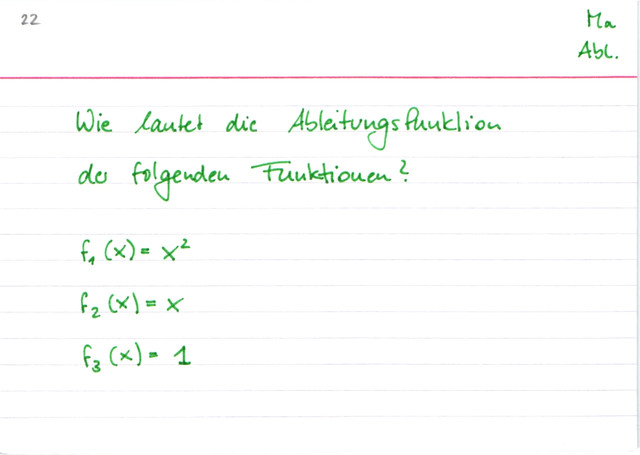 22
Ma
Abl.
Wie lautet die Ableitungsfunktion
der folgenden Funktionen?
f₁ (x) = x²
f₂ (x) = x
f₃ (x) = 1